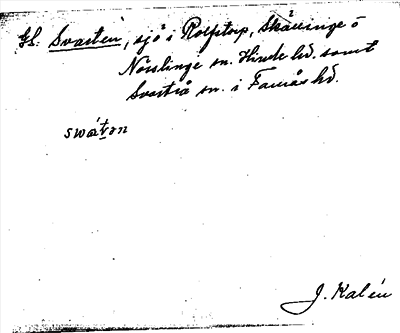 Gl. Svarten, sjö i Rolfstorp, Skällinge o
Nösslinge sn. Himle hd. samt
Svartrå sn. i Faurås hd.
swátɔn
J. Kalén